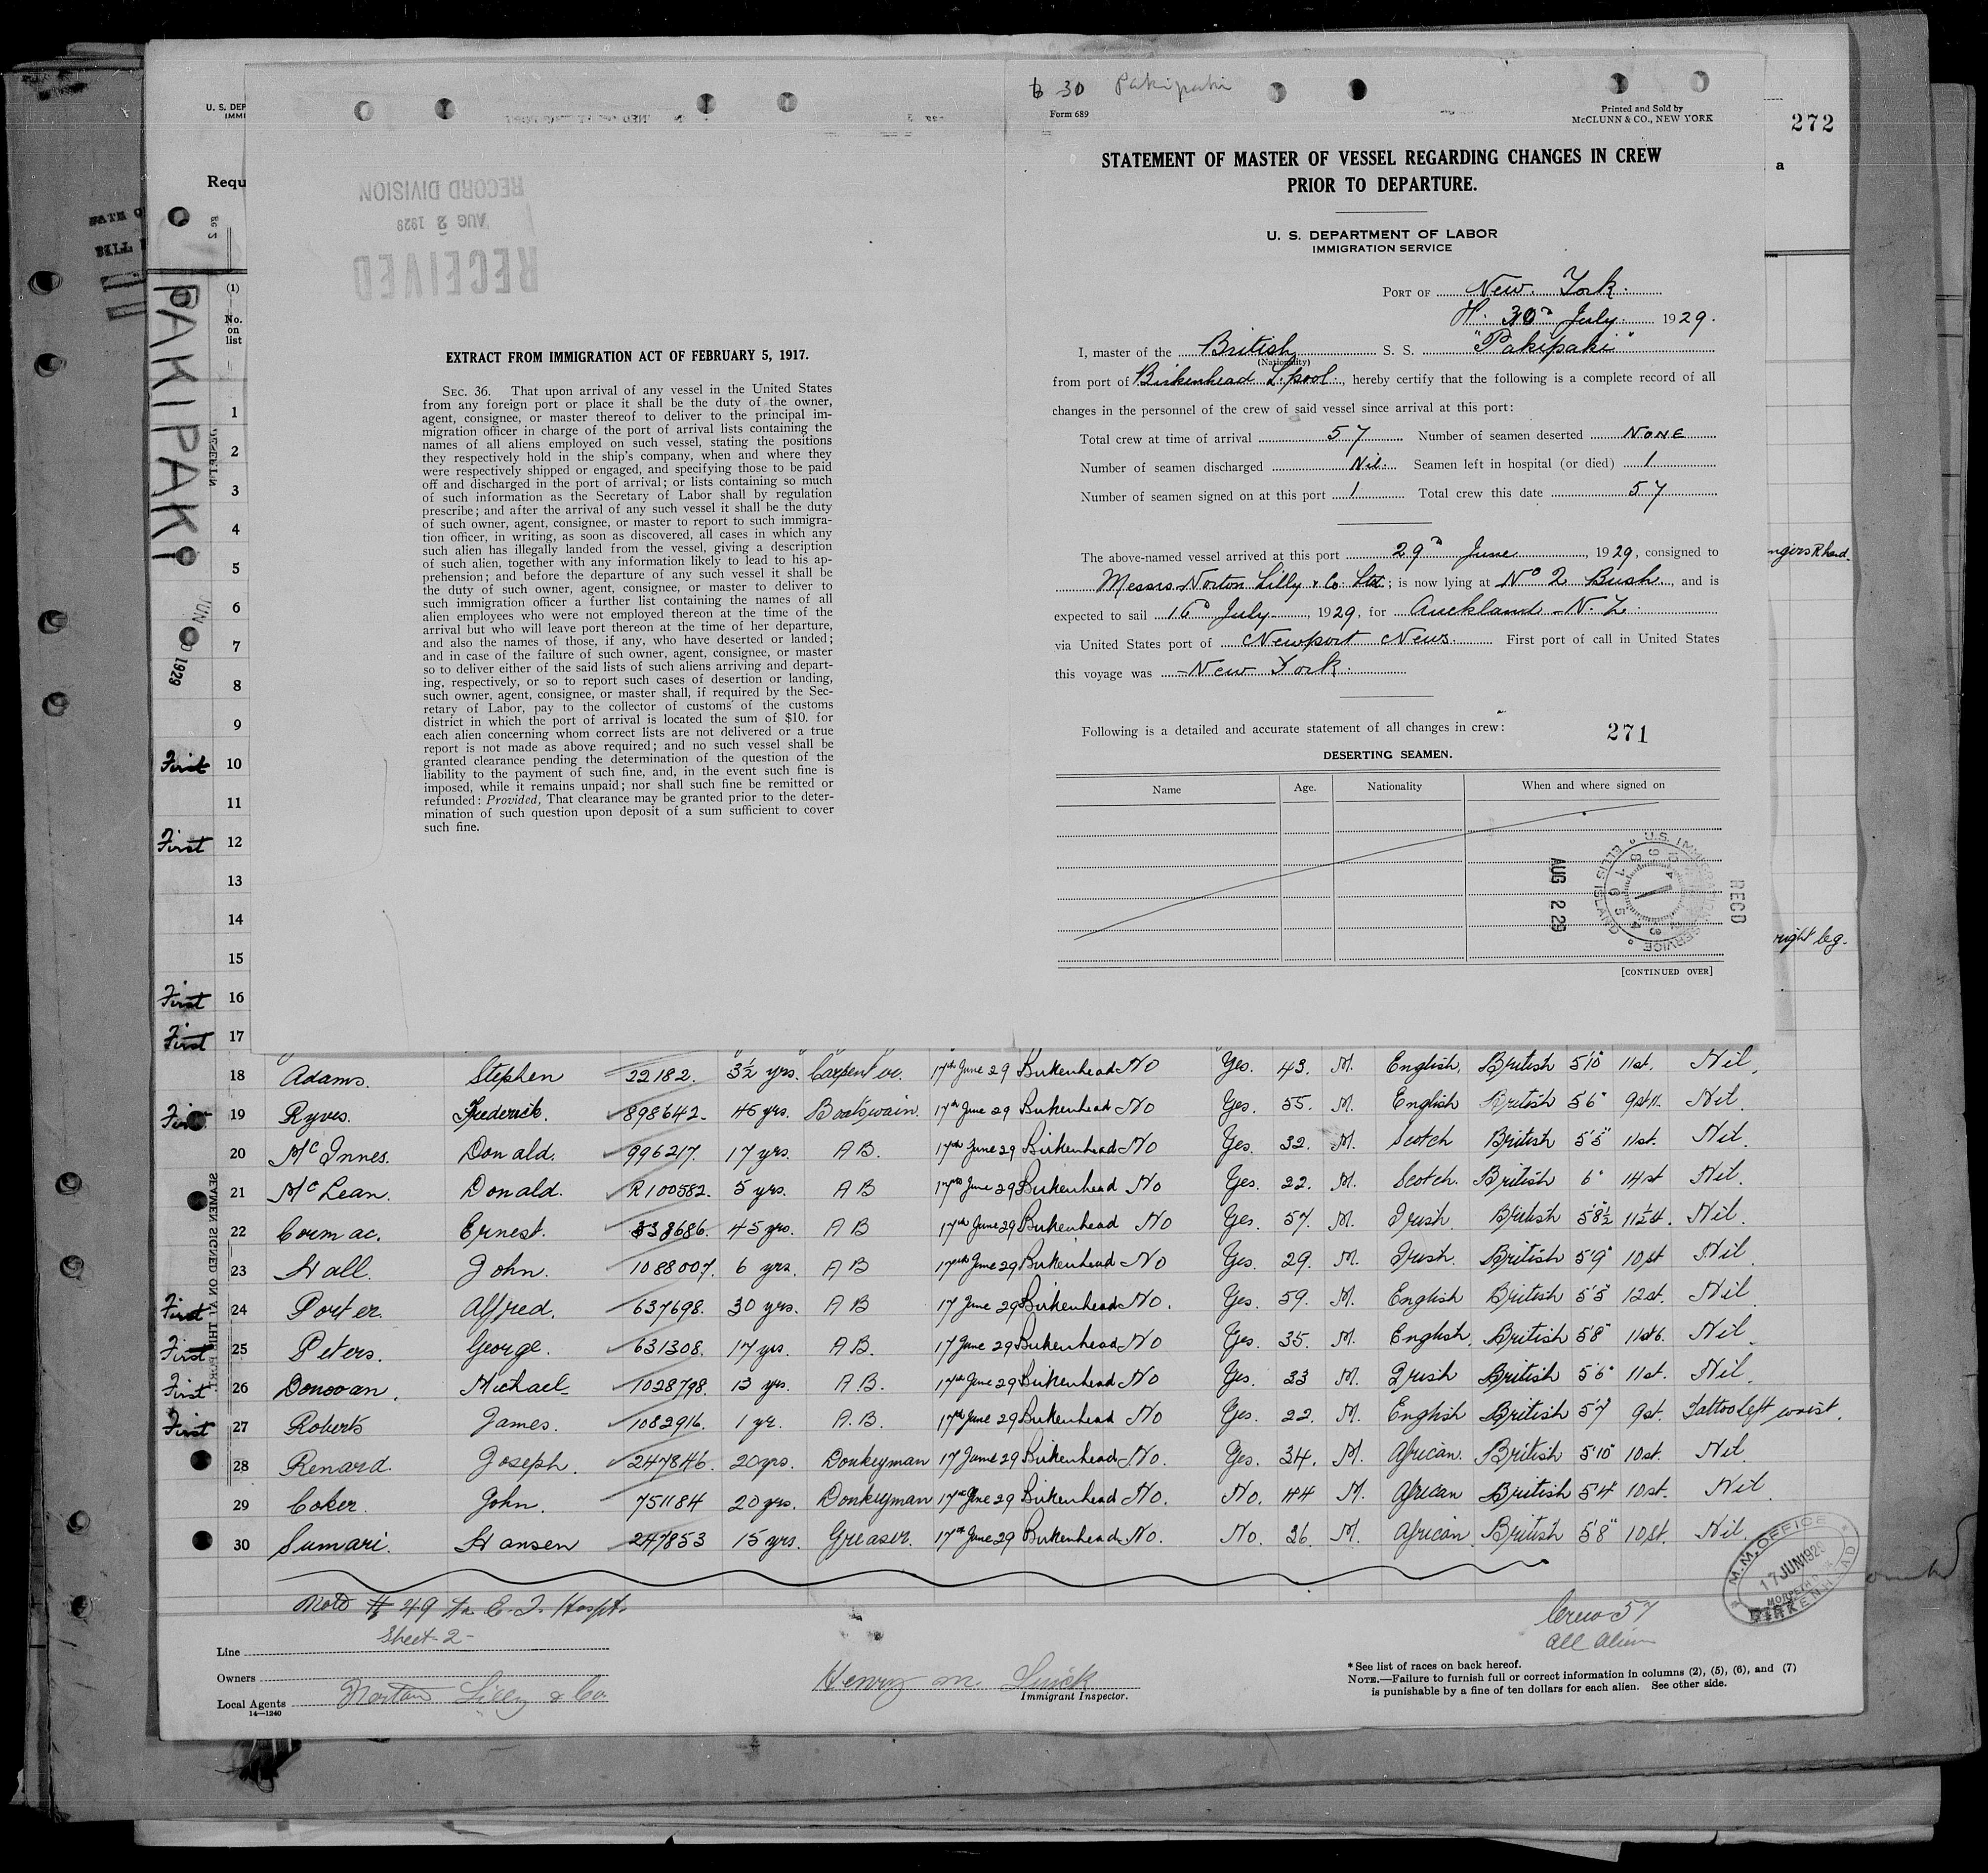 U. S. DEP
IMMI
Requ
272
a
PAKIPAKI
JUN
1929
(1)
No.
on
list
RECORD DIVISION
AUG 2 1929
RECEIVED
EXTRACT FROM IMMIGRATION ACT OF FEBRUARY 5, 1917.
SEC. 36. That upon arrival of any vessel in the United States
from any foreign port or place it shall be the duty of the owner,
agent, consignee, or master thereof to deliver to the principal im-
migration officer in charge of the port of arrival lists containing the
names of all aliens employed on such vessel, stating the positions
they respectively hold in the ship's company, when and where they
were respectively shipped or engaged, and specifying those to be paid
off and discharged in the port of arrival; or lists containing so much
of such information as the Secretary of Labor shall by regulation
prescribe; and after the arrival of any such vessel it shall be the duty
of such owner, agent, consignee, or master to report to such immigra-
tion officer, in writing, as soon as discovered, all cases in which any
such alien has illegally landed from the vessel, giving a description
of such alien, together with any information likely to lead to his ap-
prehension; and before the departure of any such vessel it shall be
the duty of such owner, agent, consignee, or master to deliver to
such immigration officer a further list containing the names of all
alien employees who were not employed thereon at the time of the
arrival but who will leave port thereon at the time of her departure,
and also the names of those, if any, who have deserted or landed;
and in case of the failure of such owner, agent, consignee, or master
so to deliver either of the said lists of such aliens arriving and depart-
ing, respectively, or so to report such cases of desertion or landing,
such owner, agent, consignee, or master shall, if required by the Sec-
retary of Labor, pay to the collector of customs of the customs
district in which the port of arrival is located the sum of $10. for
each alien concerning whom correct lists are not delivered or a true
report is not made as above required; and no such vessel shall be
granted clearance pending the determination of the question of the
liability to the payment of such fine, and, in the event such fine is
imposed, while it remains unpaid; nor shall such fine be remitted or
refunded: Provided, That clearance may be granted prior to the deter-
mination of such question upon deposit of a sum sufficient to cover
such fine.
30 Pakipaki
Form 689
Printed and Sold by
McCLUNN & CO., NEW YORK
STATEMENT OF MASTER OF VESSEL REGARDING CHANGES IN CREW
PRIOR TO DEPARTURE.
U. S. DEPARTMENT OF LABOR
IMMIGRATION SERVICE
PORT OF New York.
30th July 1929.
I, master of the British S. S. "Pakipaki"
(Nationality)
from port of Birkenhead L'pool, hereby certify that the following is a complete record of all
changes in the personnel of the crew of said vessel since arrival at this port:
Total crew at time of arrival 57 Number of seamen deserted NONE
Number of seamen discharged Nil. Seamen left in hospital (or died) 1
Number of seamen signed on at this port 1 Total crew this date 57
The above-named vessel arrived at this port 29th June, 1929, consigned to
Messrs Norton Lilly & Co Ltd; is now lying at No 2 Bush, and is
expected to sail 16th July, 1929, for Auckland - N. Z.
via United States port of Newport News. First port of call in United States
this voyage was New York.
Following is a detailed and accurate statement of all changes in crew:
271
DESERTING SEAMEN.
Name Age. Nationality When and where signed on
U.S. IMMIGRATION SERVICE ELLIS ISLAND
AUG 2 29
RECD
[CONTINUED OVER]
ngers R hand.
right leg.
1
2
3
4
5
6
7
8
9
First 10
11
First 12
13
14
15
First 16
First 17
SEAMEN SIGNED ON AT THIS PORT
18 Adams. Stephen 22182. 3½ yrs. Carpenter. 17th June 29 Birkenhead No Yes. 43. M. English. British 5'10" 11st. Nil.
First 19 Ryves. Frederick. 898642. 45 yrs. Boatswain. 17th June 29 Birkenhead No Yes. 55. M. English British 5'6" 9st11. Nil.
20 McInnes. Donald. 996217. 17 yrs. AB. 17th June 29 Birkenhead No Yes. 32. M. Scotch British 5'5" 11st. Nil.
21 McLean. Donald. R100582. 5 yrs. AB 17th June 29 Birkenhead No Yes. 22. M. Scotch. British 6' 14st Nil.
22 Cormac. Ernest. 338686. 45 yrs. AB 17th June 29 Birkenhead No Yes. 57. M. Irish. British 5'8½ 11½st. Nil.
23 Hall. John. 1088007. 6 yrs. AB 17th June 29 Birkenhead No Yes. 29. M. Irish. British 5'9" 10st Nil
First 24 Porter. Alfred. 637698. 30 yrs. AB 17 June 29 Birkenhead No. Yes. 59. M. English British 5'5" 12st. Nil
First 25 Peters. George. 631308. 17 yrs. AB. 17 June 29 Birkenhead No Yes. 35. M. English. British 5'8" 11st6. Nil.
First 26 Donovan. Michael. 1028798. 13 yrs. A.B. 17th June 29 Birkenhead No Yes. 33 M. Irish British 5'6" 11st. Nil.
First 27 Roberts James. 1082916. 1 yr. A.B. 17th June 29 Birkenhead No Yes. 22. M. English British 5'7 9st. Tattoo left wrist.
28 Renard. Joseph. 247846. 20yrs. Donkeyman 17 June 29 Birkenhead No. Yes. 34. M. African. British 5'10" 10st. Nil
29 Coker. John. 751184 20 yrs. Donkeyman 17th June 29 Birkenhead No. No. 44 M. African British 5'4 10st. Nil
30 Sumari. Hansen 247853 15 yrs. Greaser. 17th June 29 Birkenhead No. No. 36 M. African. British 5'8" 10st. Nil.
Note # 49 to E. I. Hospt.
Sheet-2-
Crew 57
All Alien
M.M. OFFICE
17 JUN 1929
BIRKENHEAD
Line
Owners
Local Agents Norton Lilly & Co.
14—1240
Henry M.
Immigrant Inspector.
* See list of races on back hereof.
NOTE.—Failure to furnish full or correct information in columns (2), (5), (6), and (7)
is punishable by a fine of ten dollars for each alien. See other side.